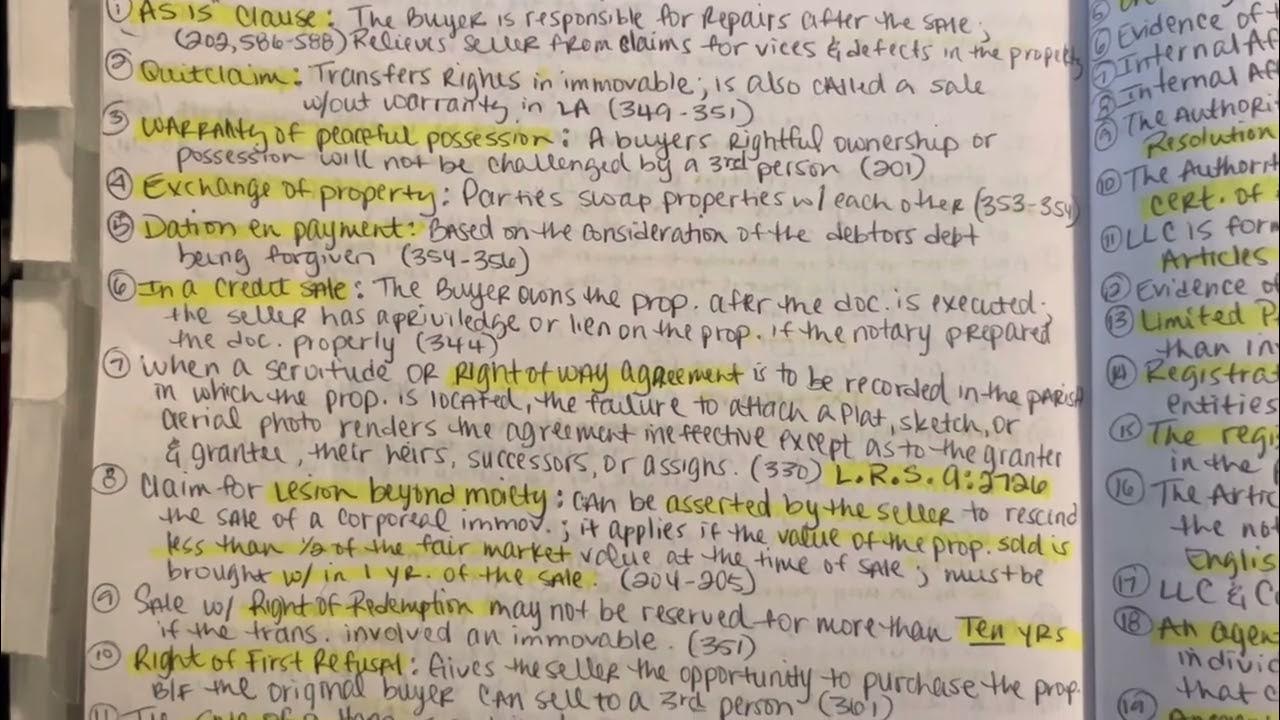 ① AS IS Clause: The Buyer is responsible for Repairs after the sale;
(202, 586-588) Relieves seller from claims for vices & defects in the property
② Quitclaim: Transfers Rights in immovable; is also called a sale
w/out warranty in LA (349-351)
③ Warranty of peaceful possession: A buyers rightful ownership or
possession will not be challenged by a 3rd person (201)
④ Exchange of property: Parties swap properties w/ each other (353-354)
⑤ Dation en payment: Based on the consideration of the debtors debt
being forgiven (354-356)
⑥ In a credit sale: The Buyer owns the prop. after the doc. is executed;
the seller has a priviledge or lien on the prop. if the notary prepared
the doc. properly (344)
⑦ When a servitude OR Right of WAY agreement is to be recorded in the parish
in which the prop. is located, the failure to attach a plat, sketch, or
aerial photo renders the agreement ineffective except as to the granter
& grantee, their heirs, successors, or assigns. (330) L.R.S. 9:2726
⑧ Claim for Lesion beyond moiety: CAN be asserted by the seller to rescind
the sale of a corporeal immov.; it applies if the value of the prop. sold is
less than 1/2 of the fair market value at the time of sale; must be
brought w/in 1 yr. of the sale. (204-205)
⑨ Sale w/ Right of Redemption may not be reserved for more than Ten yrs
if the trans. involved an immovable. (351)
⑩ Right of First Refusal: Gives the seller the opportunity to purchase the prop.
B/F the original buyer can sell to a 3rd person (361)
⑪
⑤
⑥ Evidence of
⑦ Internal Af
⑧ Internal Af
⑨ The Authori
Resolution
⑩ The Authorit
cert. of
⑪ LLC is for
Articles
⑫ Evidence o
⑬ Limited P
than in
⑭ Registra
entities
⑮ The regi
in the
⑯ The Artic
the no
Englis
⑰ LLC & C
⑱ An agen
indivi
that c
⑲